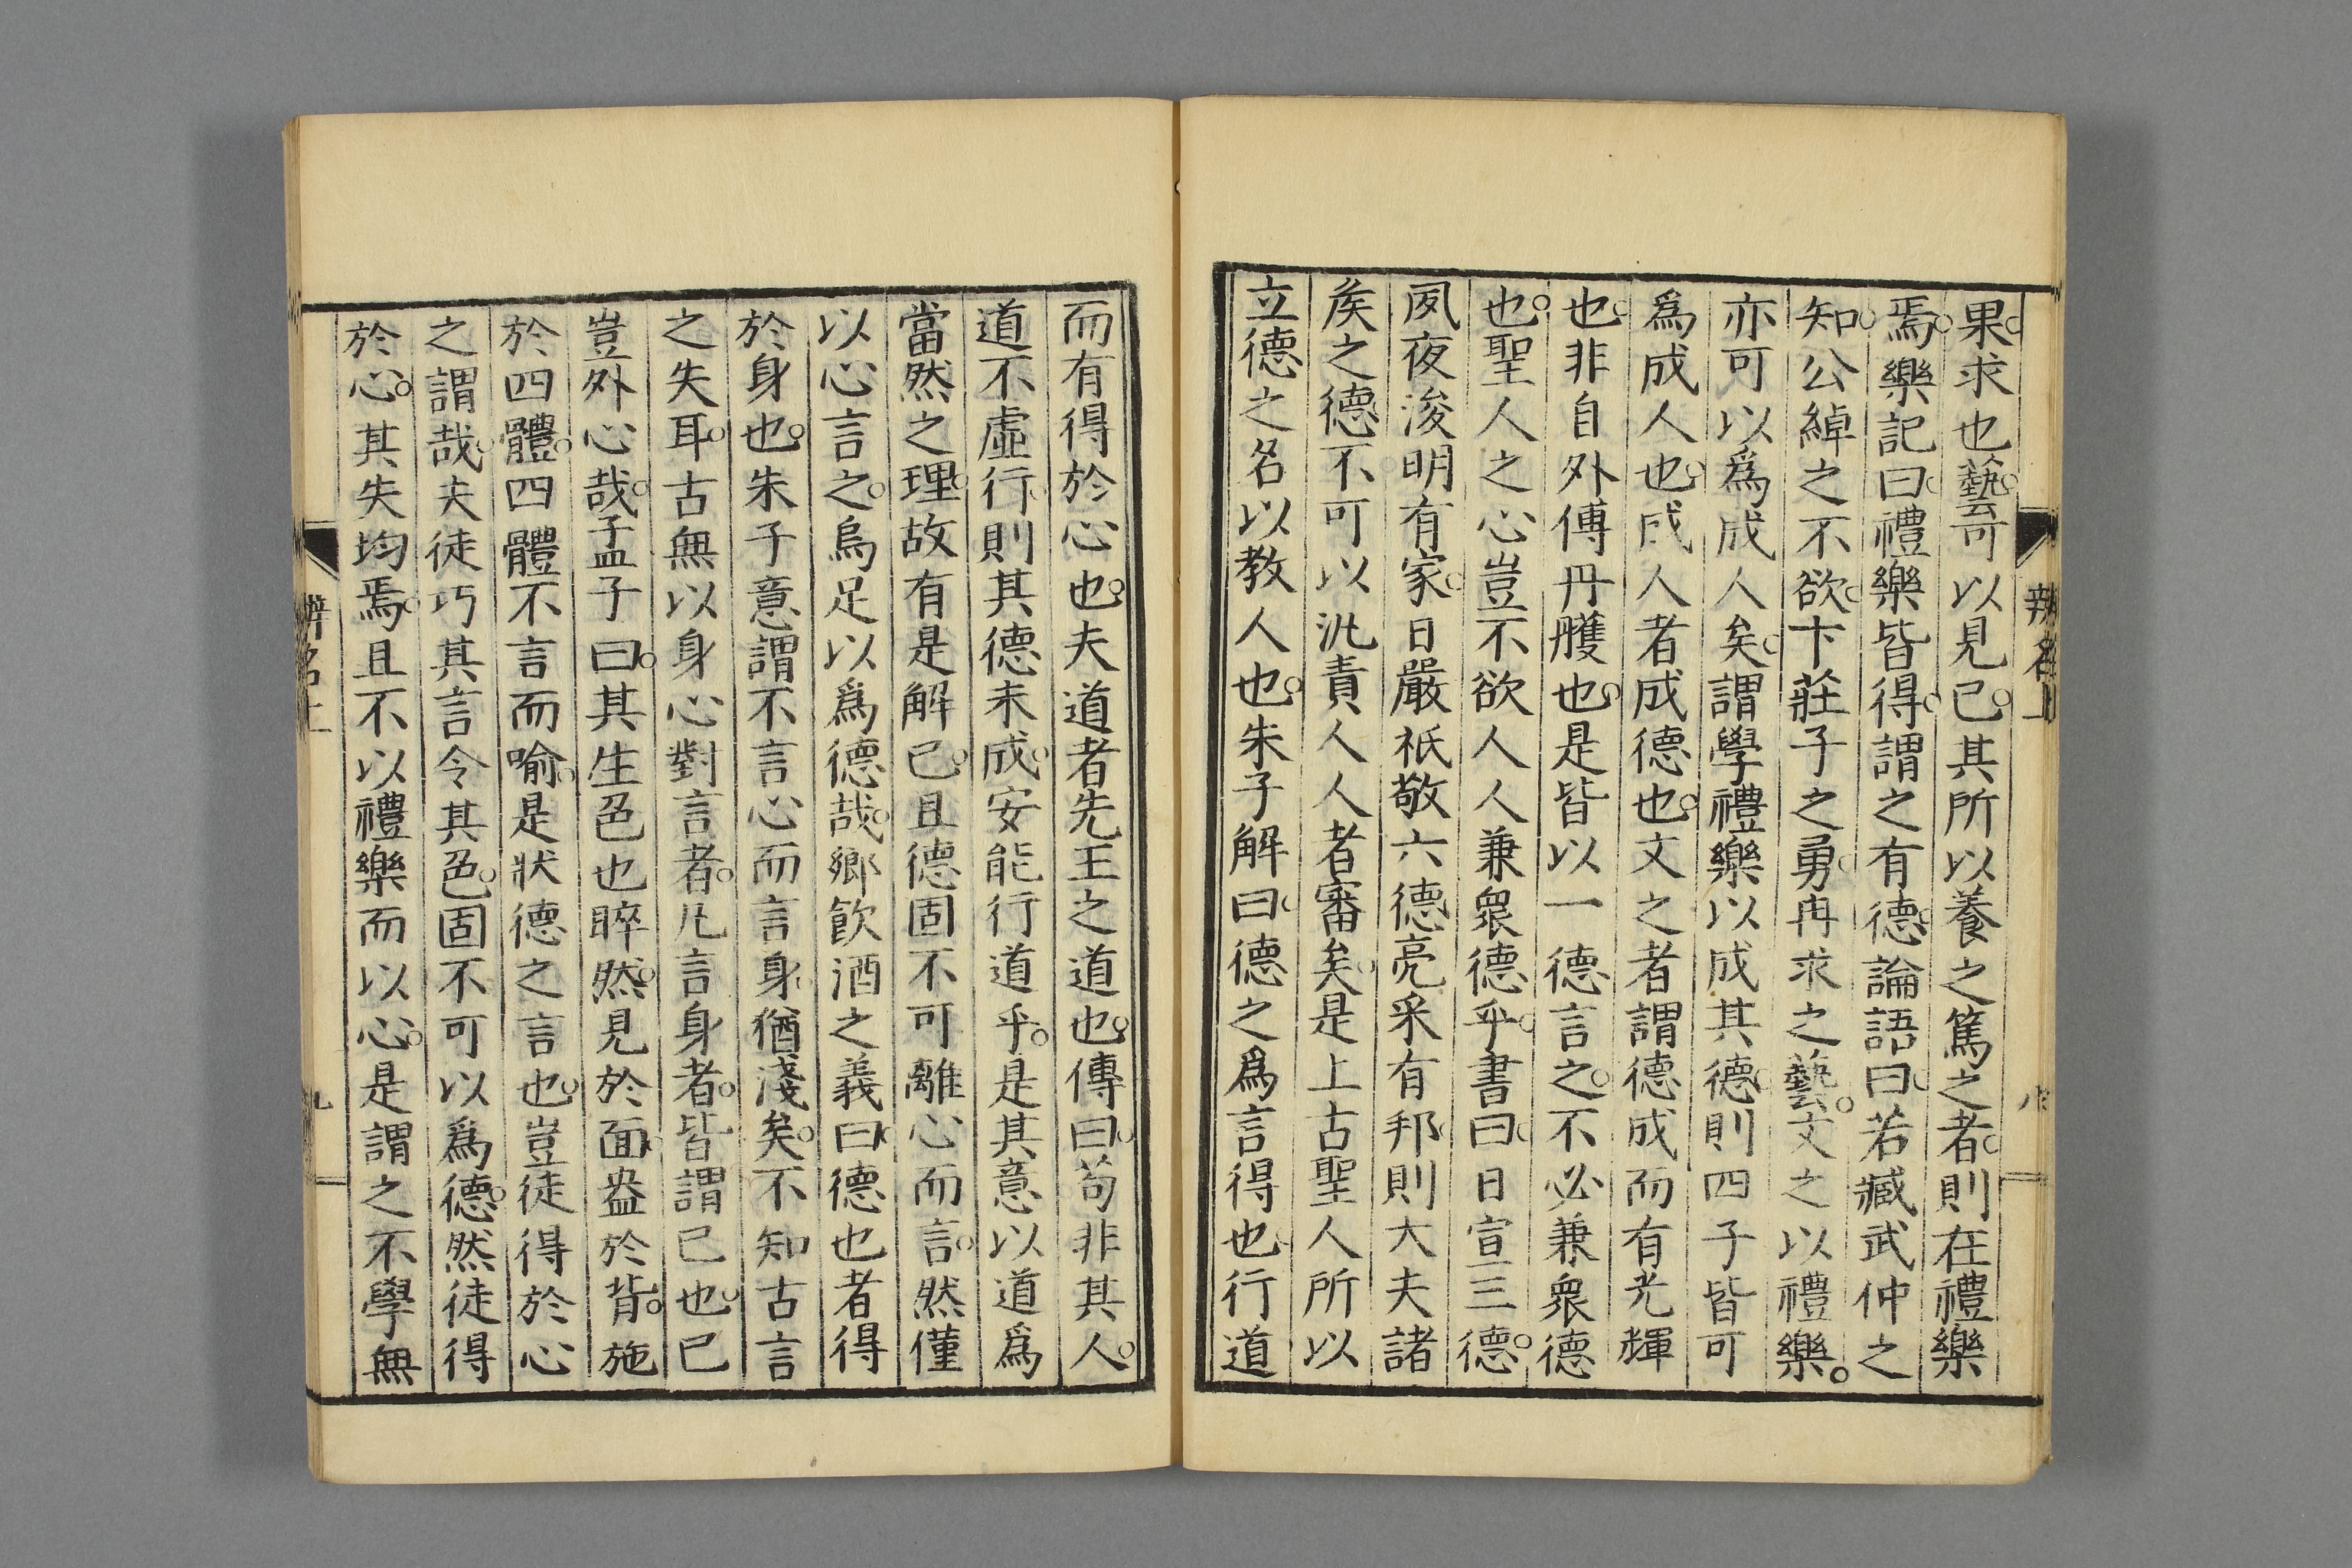 辨名上
八
果。求也。藝。可以見已。其所以養之篤之者。則在禮樂
焉。樂記曰。禮樂皆得。謂之有德。論語曰。若臧武仲之
知。公綽之不欲。卞莊子之勇。冉求之藝。文之以禮樂。
亦可以爲成人矣。謂學禮樂以成其德。則四子皆可
爲成人也。成人者成德也。文之者謂德成而有光輝
也。非自外傅丹雘也。是皆以一德言之。不必兼衆德
也。聖人之心豈不欲人人兼衆德乎。書曰。日宣三德。
夙夜浚明有家。日嚴祇敬六德。亮采有邦。則大夫諸
矦之德。不可以沘責人人者審矣。是上古聖人所以
立德之名以教人也。朱子解曰。德之爲言得也。行道
而有得於心也。夫道者先王之道也。傳曰。苟非其人。
道不虛行。則其德未成。安能行道乎。是其意以道爲
當然之理。故有是解已。且德固不可離心而言。然僅
以心言之。烏足以爲德哉。鄉飮酒之義曰。德也者得
於身也。朱子意謂不言心而言身。猶淺矣。不知古言
之失耳。古無以身心對言者。凡言身者。皆謂己也。已
豈外心哉。孟子曰。其生色也睟然。見於面。盎於背。施
於四體。四體不言而喻。是狀德之言也。豈徒得於心
之謂哉。夫徒巧其言令其色。固不可以爲德。然徒得
於心。其失均焉。且不以禮樂而以心。是謂之不學無
辨名上
九